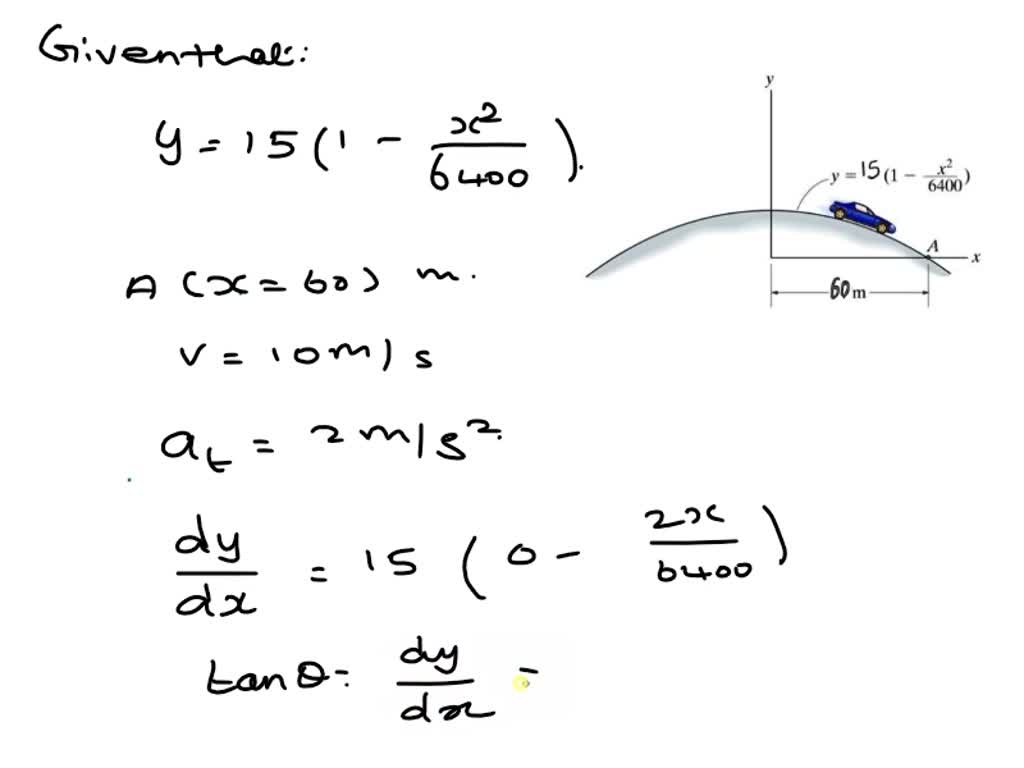 Giventhat:
y = 15 (1 - x²/6400).
A (x = 60) m.
v = 10 m/s
aₜ = 2 m/s².
dy/dx = 15 (0 - 2x/6400)
tan θ = dy/dx =
y
y = 15 (1 - x²/6400)
A
x
60 m